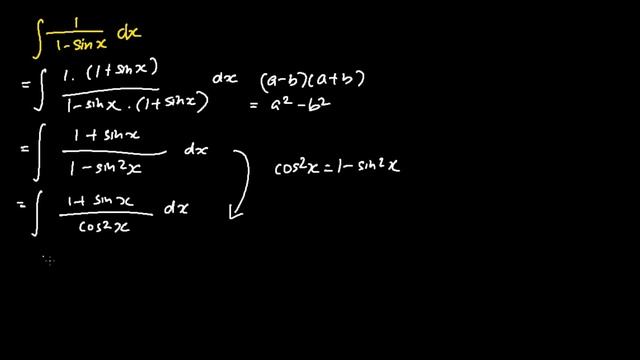 ∫ 1/(1-sinx) dx
= ∫ 1·(1+sinx)/(1-sinx·(1+sinx)) dx (a-b)(a+b)
= a²-b²
= ∫ (1+sinx)/(1-sin²x) dx
cos²x=1-sin²x
= ∫ (1+sinx)/(cos²x) dx